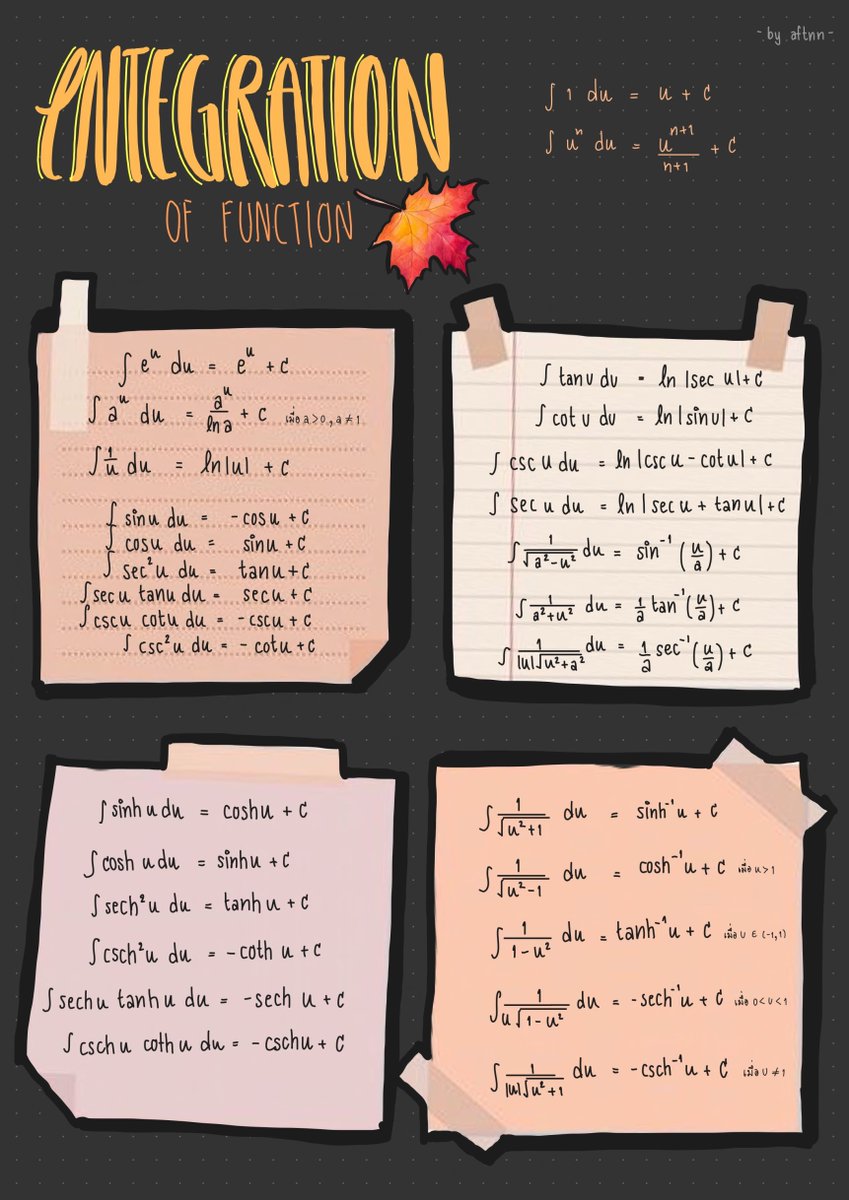 - by aftnn -
INTEGRATION
OF FUNCTION
∫ 1 du = u + C
∫ uⁿ du = uⁿ⁺¹/n+1 + C
∫ eᵘ du = eᵘ + C
∫ aᵘ du = aᵘ/ln a + C เมื่อ a > 0, a ≠ 1
∫ 1/u du = ln|u| + C
∫ sinu du = -cosu + C
∫ cosu du = sinu + C
∫ sec²u du = tanu + C
∫ secu tanu du = secu + C
∫ cscu cotu du = -cscu + C
∫ csc²u du = -cotu + C
∫ tanu du = ln |sec u| + C
∫ cot u du = ln |sinu| + C
∫ csc u du = ln |csc u - cotu| + C
∫ sec u du = ln |secu + tanu| + C
∫ 1/√a²-u² du = sin⁻¹ (u/a) + C
∫ 1/a²+u² du = 1/a tan⁻¹(u/a) + C
∫ 1/|u|√u²+a² du = 1/a sec⁻¹(u/a) + C
∫ sinh u du = coshu + C
∫ cosh u du = sinhu + C
∫ sech²u du = tanh u + C
∫ csch²u du = -coth u + C
∫ sechu tanhu du = -sech u + C
∫ cschu cothu du = -cschu + C
∫ 1/√u²+1 du = sinh⁻¹u + C
∫ 1/√u²-1 du = cosh⁻¹u + C เมื่อ u > 1
∫ 1/1-u² du = tanh⁻¹u + C เมื่อ u ∈ (-1,1)
∫ 1/u√1-u² du = -sech⁻¹u + C เมื่อ 0 < u < 1
∫ 1/|u|√u²+1 du = -csch⁻¹u + C เมื่อ u ≠ 1